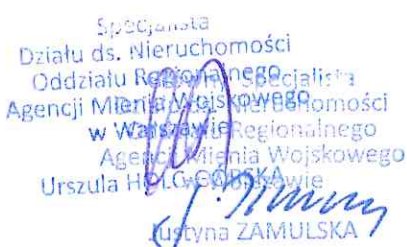 Specjalista
Działu ds. Nieruchomości
Oddziału Regionalnego
Agencji Mienia Wojskowego
w Warszawie
Urszula
Specjalista
Nieruchomości
Regionalnego
Agencji Mienia Wojskowego
w Warszawie
Justyna ZAMULSKA